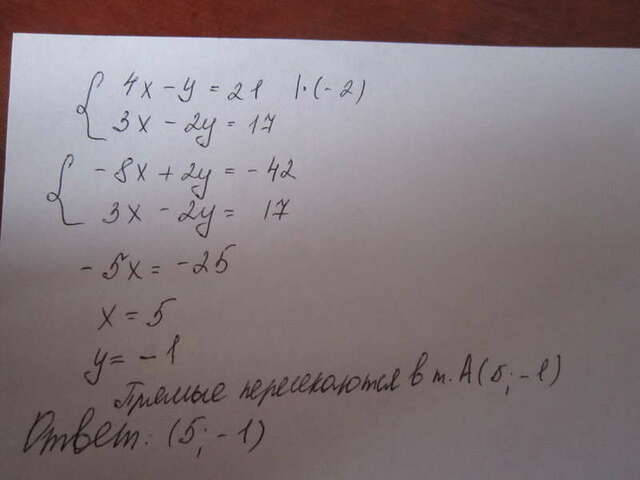 4x - y = 21 |·(-2)
3x - 2y = 17
-8x + 2y = -42
3x - 2y = 17
-5x = -25
x = 5
y = -1
Прямые пересекаются в т. А(5; -1)
Ответ: (5; -1)